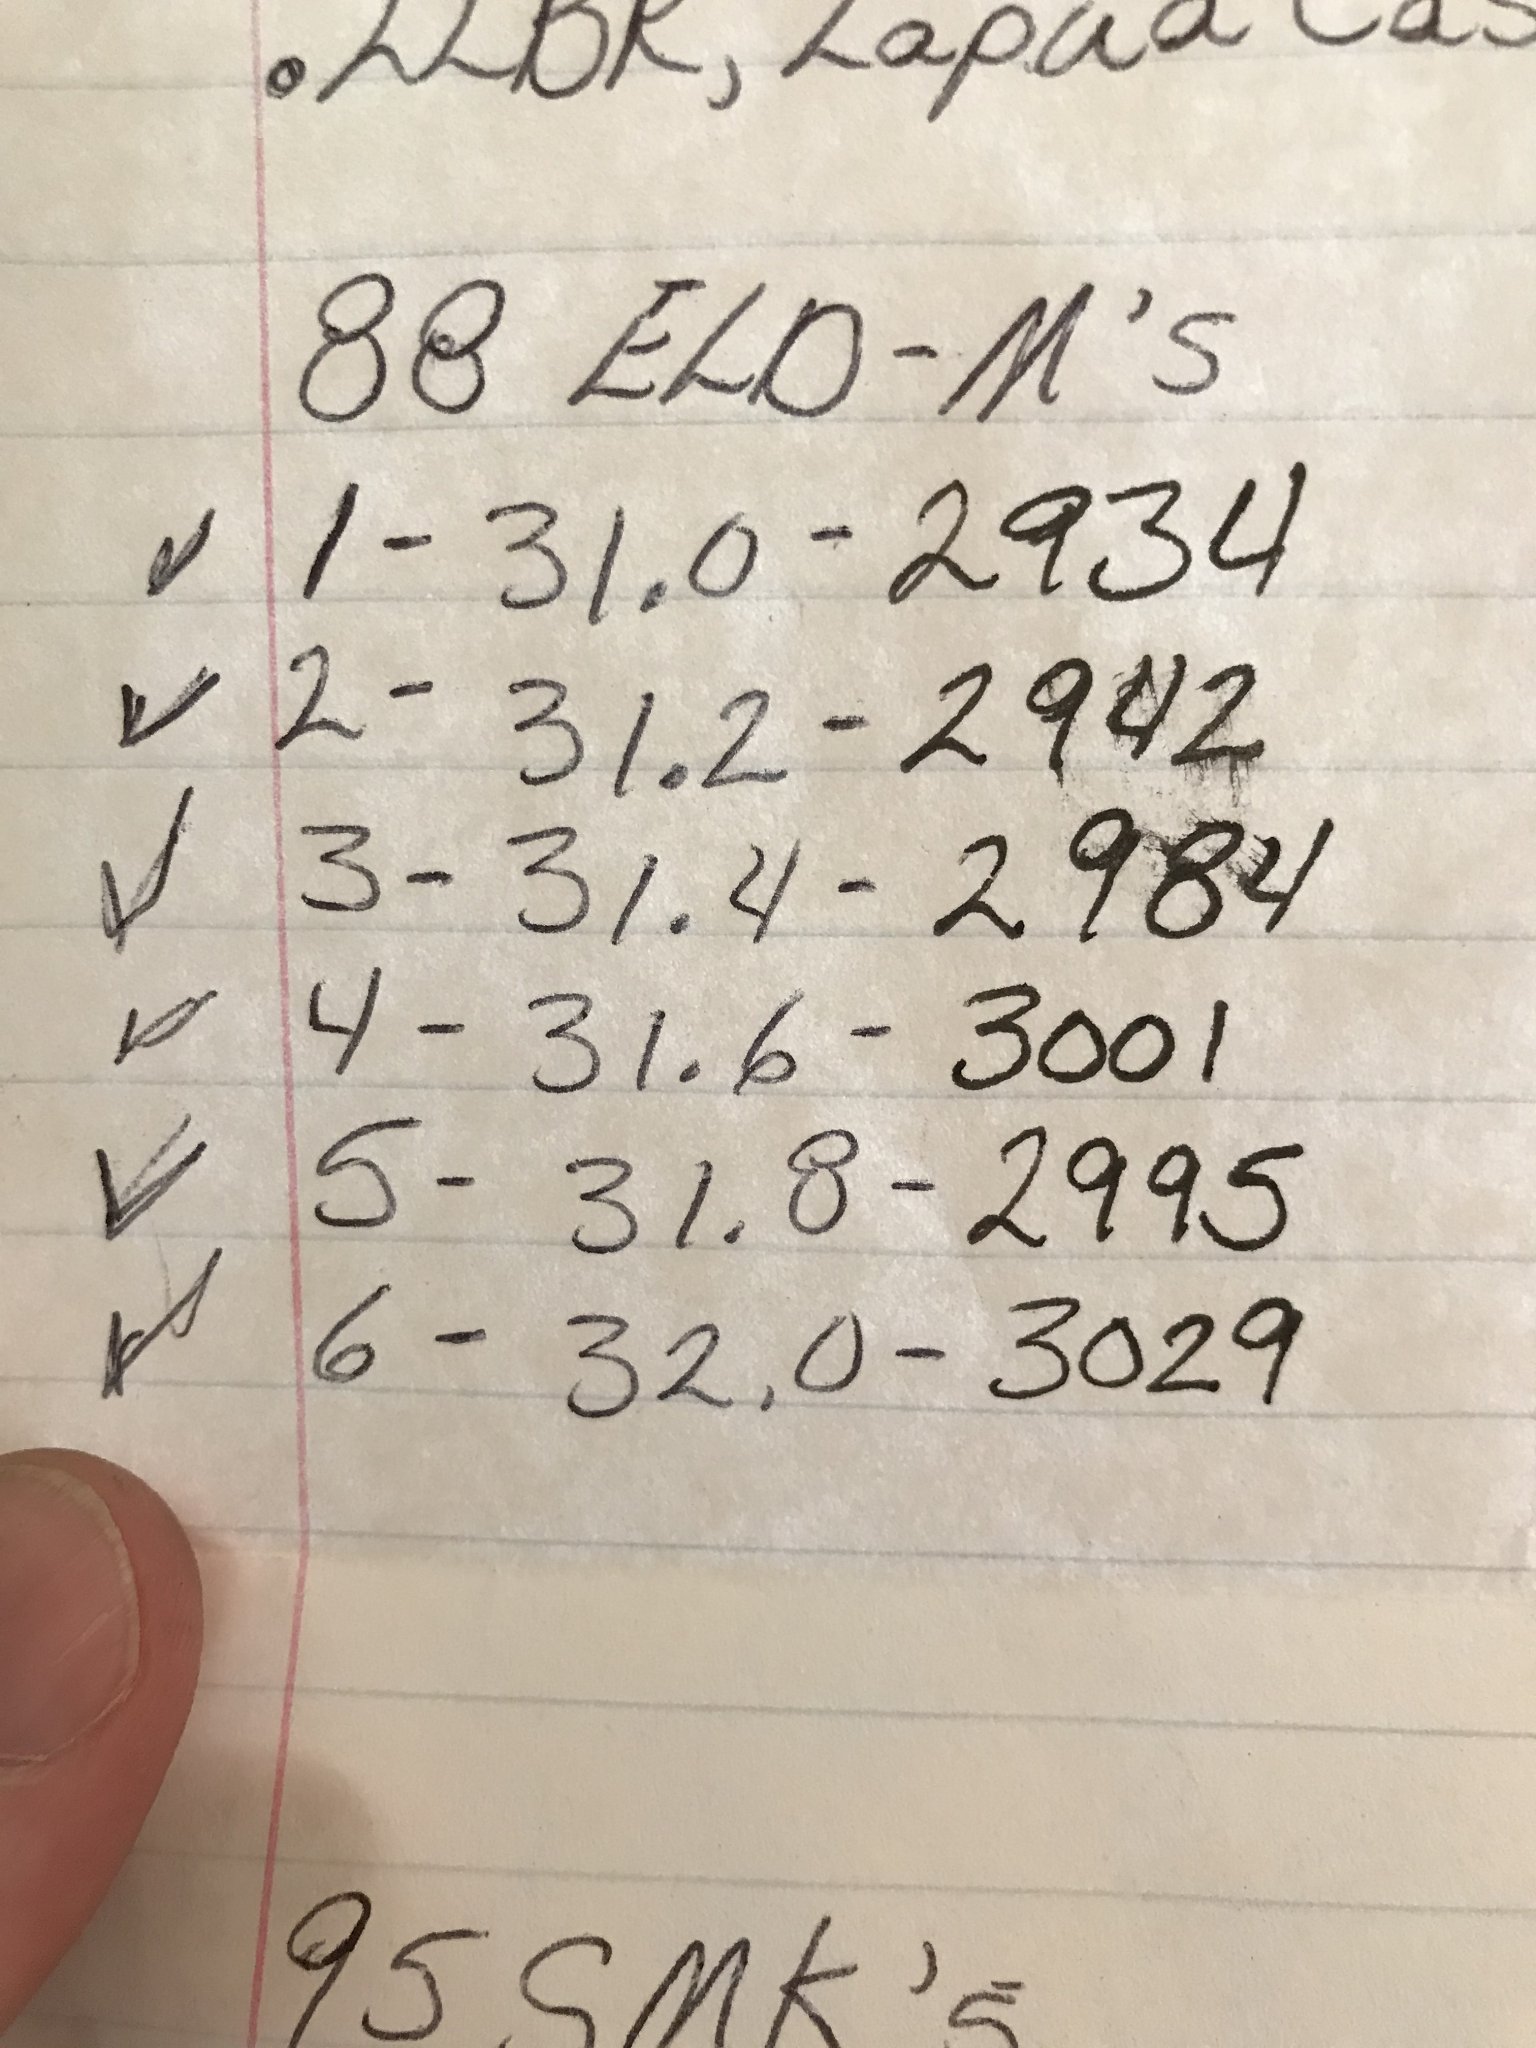 .22BR, Lapua Cas
88 ELD-M's
1 - 31.0 - 2934
2 - 31.2 - 2942
3 - 31.4 - 2984
4 - 31.6 - 3001
5 - 31.8 - 2995
6 - 32.0 - 3029
95 SMK's